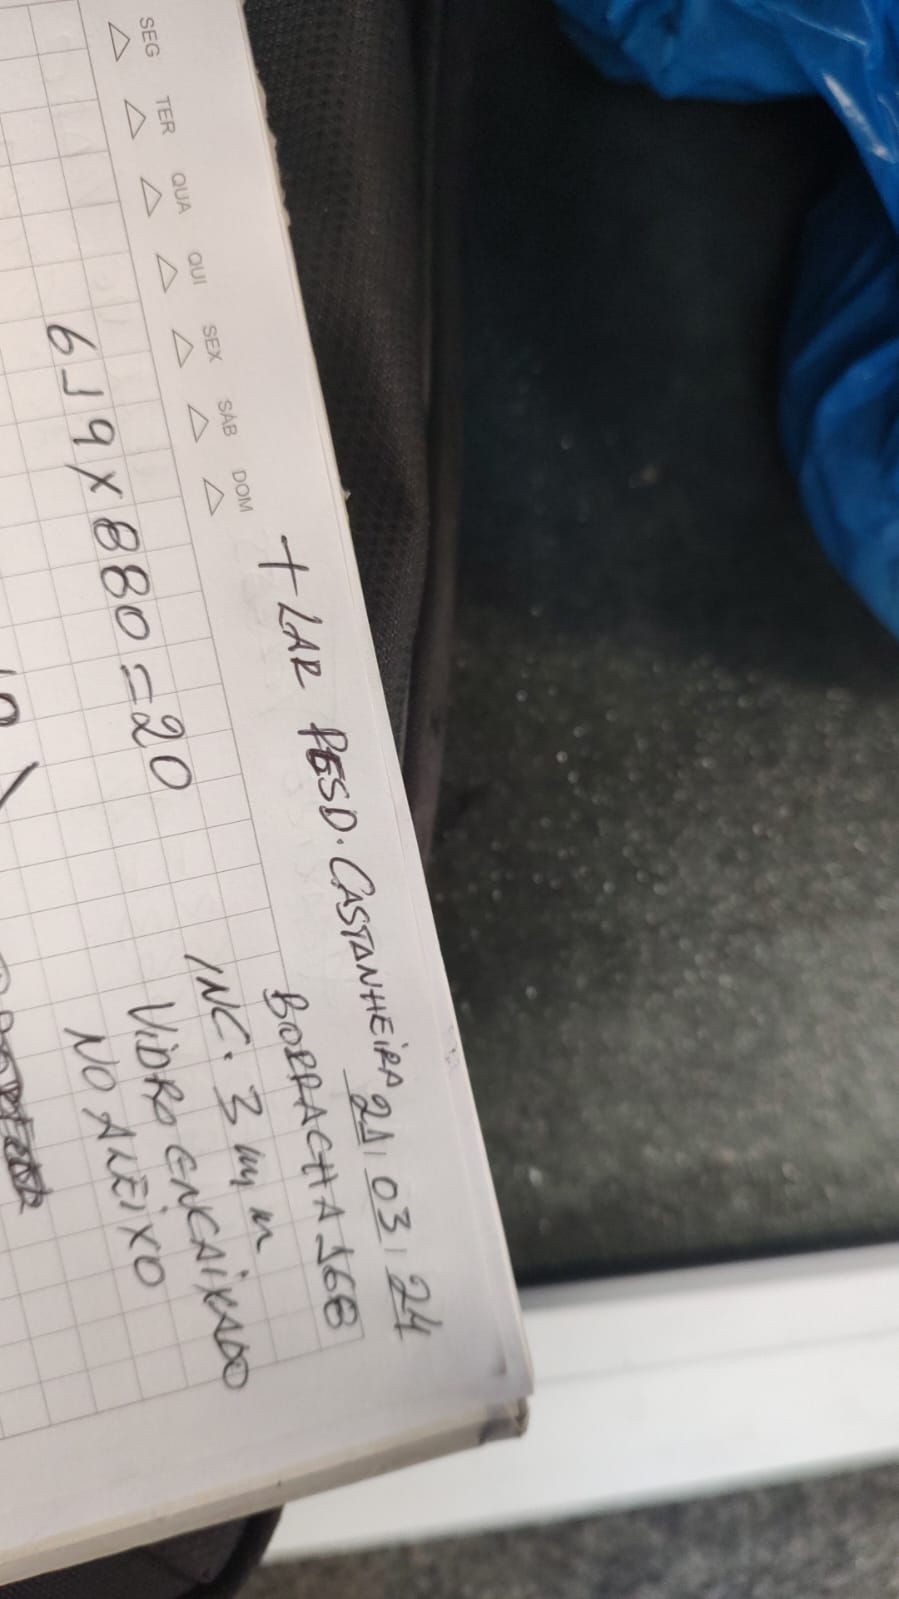 SEG TER QUA QUI SEX SÁB DOM
+ LAR RESD. CASTANHEIRA 21.03.24
BORRACHA 168
INC. 3 mm
VIDRO ENCAIXADO
NO ALEIXO
619 x 880 = 20